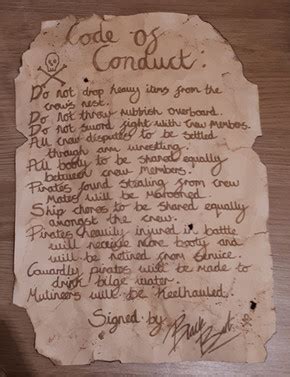 Code of
Conduct:
Do not drop heavy items from the
crow's nest.
Do not throw rubbish overboard.
Do not sword fight with crew members.
All crew disputes to be settled
through arm wrestling.
All booty to be shared equally
between crew members.
Pirates found stealing from crew
mates will be marooned.
Ship chores to be shared equally
amongst the crew.
Pirates heavily injured in battle
will receive more booty and
will be retired from service.
Cowardly pirates will be made to
drink bilge water.
Mutineers will be Keelhauled.
Signed by